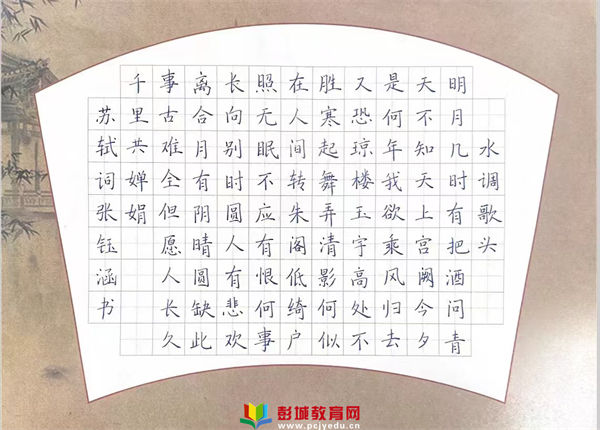 水调歌头
明月几时有把酒问青
天不知天上宫阙今夕
是何年我欲乘风归去
又恐琼楼玉宇高处不
胜寒起舞弄清影何似
在人间转朱阁低绮户
照无眠不应有恨何事
长向别时圆人有悲欢
离合月有阴晴圆缺此
事古难全但愿人长久
千里共婵娟
苏轼词张钰涵书
彭城教育网
www.pcjyedu.cn